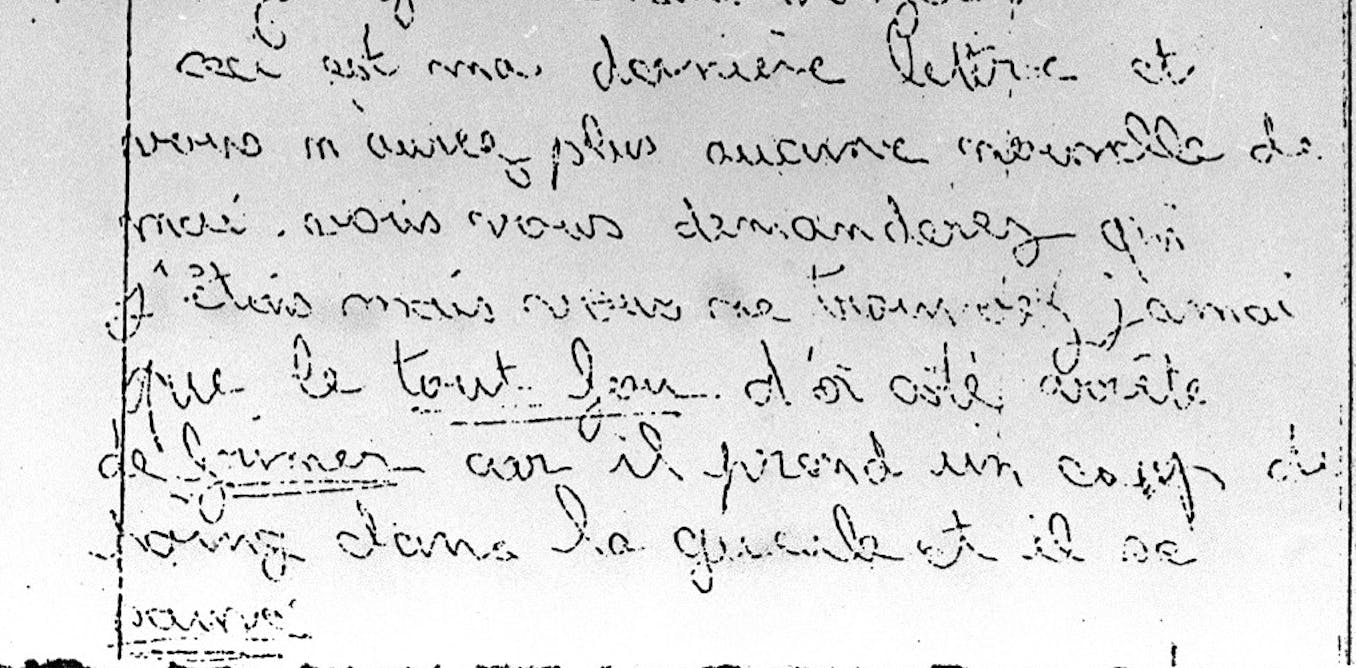 ceci est ma dernière lettre et
vous n'aurez plus aucune nouvelle de
moi. vous vous demanderez qui
j'étais mais vous ne trouverez jamai
que le tout fou. d'ôi côté arrête
de frimer car il prend un coup de
poing dans la gueule et il se